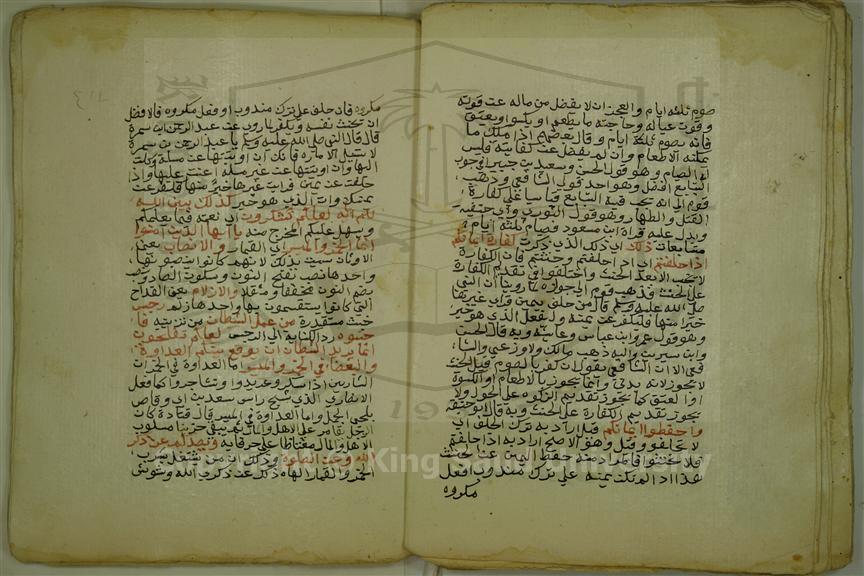 صوم ثلثه ايام والعجز ان لا يفضل من ماله عن قوته
وقوت عياله وحاجته ما يطعم او يكسوا او يعتق
فانه يصوم ثلثة ايام وقال بعضهم اذا ملك ما
يمكنه الاطعام وان لم يفضل عن كفايته فليس
له الصيام وهو قول الحسن وسعيد بن جبير
قوم الى انه يجب فيه التتابع قياسا على كفارة
القتل والظهار وهو قول الثوري وابي حنيفة
ويدل عليه قراة ابن مسعود فصيام ثلثة ايام
متتابعات ذلك اي ذلك الذي ذكرت كفارة ايمانكم
اذا حلفتم اي اذا حلفتم وحنثتم فان الكفارة
لا تجب الا بعد الحنث واختلفوا في تقديم الكفارة
على الحنث فذهب قوم الى جوازه لما روينا ان النبي
صلى الله عليه وسلم قال من حلف بيمين فراى غيرها
خيرا منها فليكفر عن يمينه وليفعل الذي هو خير
وهو قول عمر وابن عباس وعايشة وبه قال الحسن
وابن سيرين واليه ذهب مالك والاوزاعي والشا
فعي الا ان الشافعي يقول ان كفر بالصوم قبل الحنث
لا يجوز لانه بدني وانما يجوز بالاطعام او الكسوة
او العتق كما يجوز تقديم الزكوه على الحول ولا
يجوز تقديم الكفارة على الحنث وبه قال ابو حنيفة
واحفظوا ايمانكم قيل اراد به ترك الحلف اي
لا تحلفو وقيل وهو الاصح اراد به اذا حلفتم
فلا تحنثوا فالمراد منه حفظ اليمين عن الحنث
هذا اذا لم يكن يمينه على ترك مندوب او فعل
مكروه
مكروه فان حلف على ترك مندوب او فعل مكروه فالافضل
ان يحنث نفسه ويكفر لما روي عن عبد الرحمن بن سمرة
قال قال النبي صلى الله عليه وسلم يا عبد الرحمن بن سمرة
لا تسئل الامارة فانك ان اوتيتها عن مسئلة وكلت
اليها وان اوتيتها عن غير مسئلة اعنت عليها واذا
حلفت على يمين فرايت غيرها خيرا منها فكفر عن
يمينك وات الذي هو خير كذلك يبين الله
لكم آياته لعلكم تشكرون
ويسهل عليكم المخرج منه يا ايها الذين امنوا
انما الخمر والميسر اي القمار والانصاب يعني
الاوثان سميت بذلك لانهم كانوا ينصبونها
واحدها نصب بفتح النون وسكون الصاد ونصب
بضم النون مخففا ومثقلا والازلام يعني القداح
التي كانوا يستقسمون بها واحدها زلم رجس
خبيث مستقذر من عمل الشيطان من تزيينه فا
جتنبوه رد الكناية الى الرجس لعلكم تفلحون
انما يريد الشيطان ان يوقع بينكم العداوة
والبغضاء في الخمر والميسر اما العداوة في الخمر ان
الشاربين اذا سكروا عربدوا وتشاجروا كما فعل
الانصاري الذي شج راس سعد بن ابي وقاص
بلحي الجمل واما العداوة في الميسر قال قتادة كان
الرجل يقامر على الاهل والمال ثم يبقى حزينا مسلوب
الاهل والمال مغتاظا على حرفائه ويصدكم عن ذكر
الله وعن الصلوة وذلك ان من اشتغل بشرب
الخمر والقمار الهاه ذلك عن ذكر الله وشوش